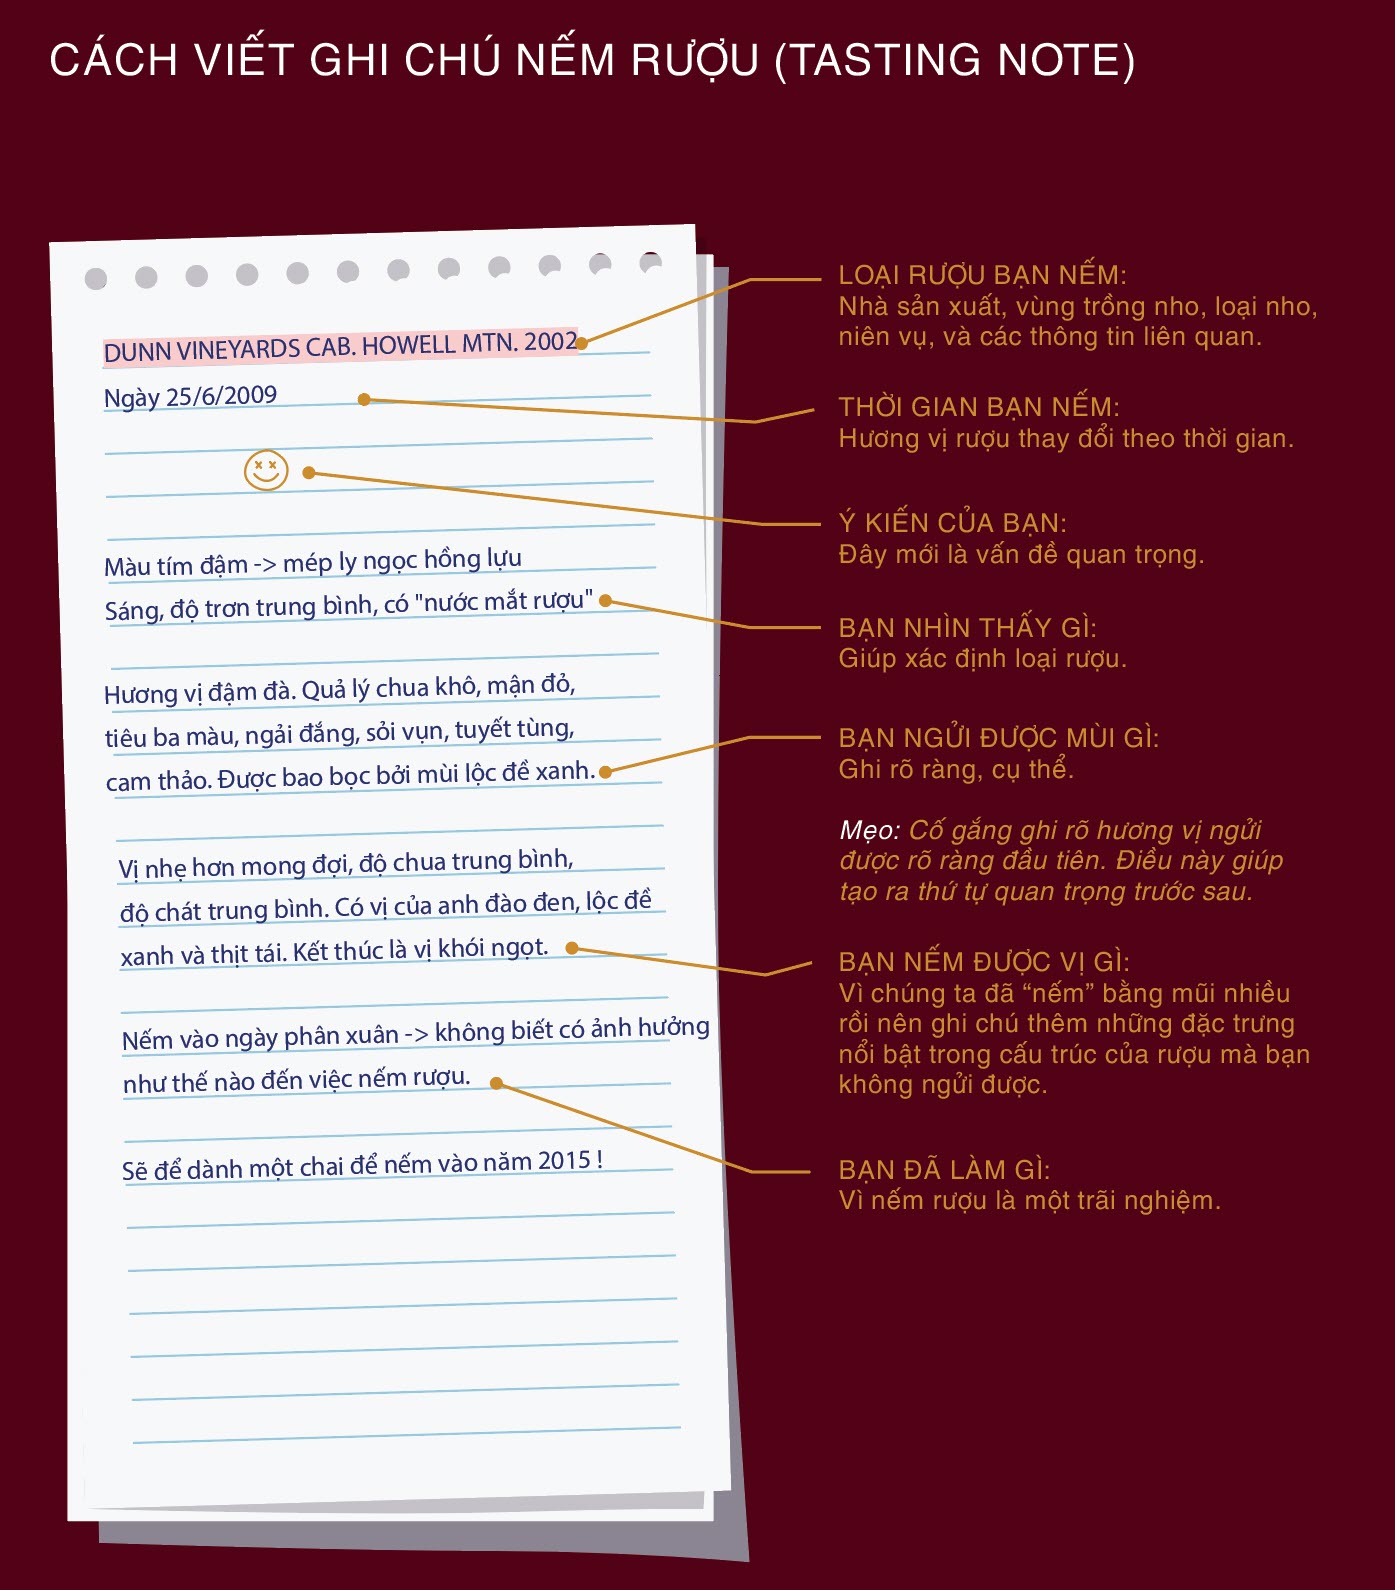 CÁCH VIẾT GHI CHÚ NẾM RƯỢU (TASTING NOTE)
DUNN VINEYARDS CAB. HOWELL MTN. 2002
Ngày 25/6/2009
Màu tím đậm -> mép ly ngọc hồng lựu
Sáng, độ trơn trung bình, có "nước mắt rượu"
Hương vị đậm đà. Quả lý chua khô, mận đỏ,
tiêu ba màu, ngải đắng, sỏi vụn, tuyết tùng,
cam thảo. Được bao bọc bởi mùi lộc đề xanh.
Vị nhẹ hơn mong đợi, độ chua trung bình,
độ chát trung bình. Có vị của anh đào đen, lộc đề
xanh và thịt tái. Kết thúc là vị khói ngọt.
Nếm vào ngày phân xuân -> không biết có ảnh hưởng
như thế nào đến việc nếm rượu.
Sẽ để dành một chai để nếm vào năm 2015 !
LOẠI RƯỢU BẠN NẾM:
Nhà sản xuất, vùng trồng nho, loại nho,
niên vụ, và các thông tin liên quan.
THỜI GIAN BẠN NẾM:
Hương vị rượu thay đổi theo thời gian.
Ý KIẾN CỦA BẠN:
Đây mới là vấn đề quan trọng.
BẠN NHÌN THẤY GÌ:
Giúp xác định loại rượu.
BẠN NGỬI ĐƯỢC MÙI GÌ:
Ghi rõ ràng, cụ thể.
Mẹo: Cố gắng ghi rõ hương vị ngửi
được rõ ràng đầu tiên. Điều này giúp
tạo ra thứ tự quan trọng trước sau.
BẠN NẾM ĐƯỢC VỊ GÌ:
Vì chúng ta đã “nếm” bằng mũi nhiều
rồi nên ghi chú thêm những đặc trưng
nổi bật trong cấu trúc của rượu mà bạn
không ngửi được.
BẠN ĐÃ LÀM GÌ:
Vì nếm rượu là một trãi nghiệm.